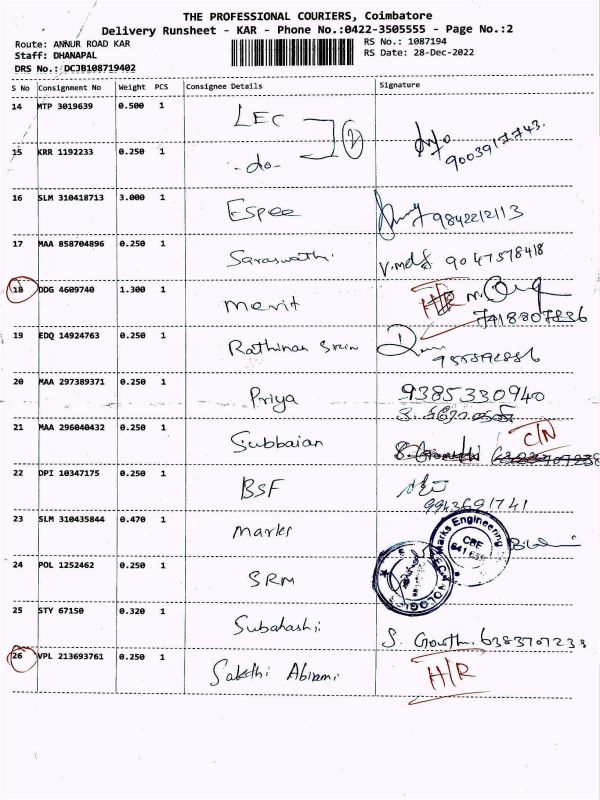 THE PROFESSIONAL COURIERS, Coimbatore
Delivery Runsheet - KAR - Phone No.:0422-3505555 - Page No.:2
Route: ANNUR ROAD KAR RS No.: 1087194
Staff: DHANAPAL RS Date: 28-Dec-2022
DRS No.: DCJB108719402
S No Consignment No Weight PCS Consignee Details Signature
14 MTP 3019639 0.500 1 LEC 2
15 KRR 1192233 0.250 1 -do- 9003917743.
16 SLM 310418713 3.000 1 Espee 9842212113
17 MAA 858704896 0.250 1 Saraswathi 9047578418
18 DDG 4609740 1.300 1 Merit H/R
7418807836
19 EDQ 14924763 0.250 1 Rathinan
20 MAA 297389371 0.250 1 Priya 9385330940
21 MAA 296040432 0.250 1 Subbaian C/N
22 DPI 10347175 0.250 1 BSF
9943691741
23 SLM 310435844 0.470 1 Marks
Marks Engineering
CBE
24 POL 1252462 0.250 1 SRM
25 STY 67150 0.320 1 Subahashi S. Gowth. 6383707238
26 VPL 213693761 0.250 1 Sakthi Abirami H/R